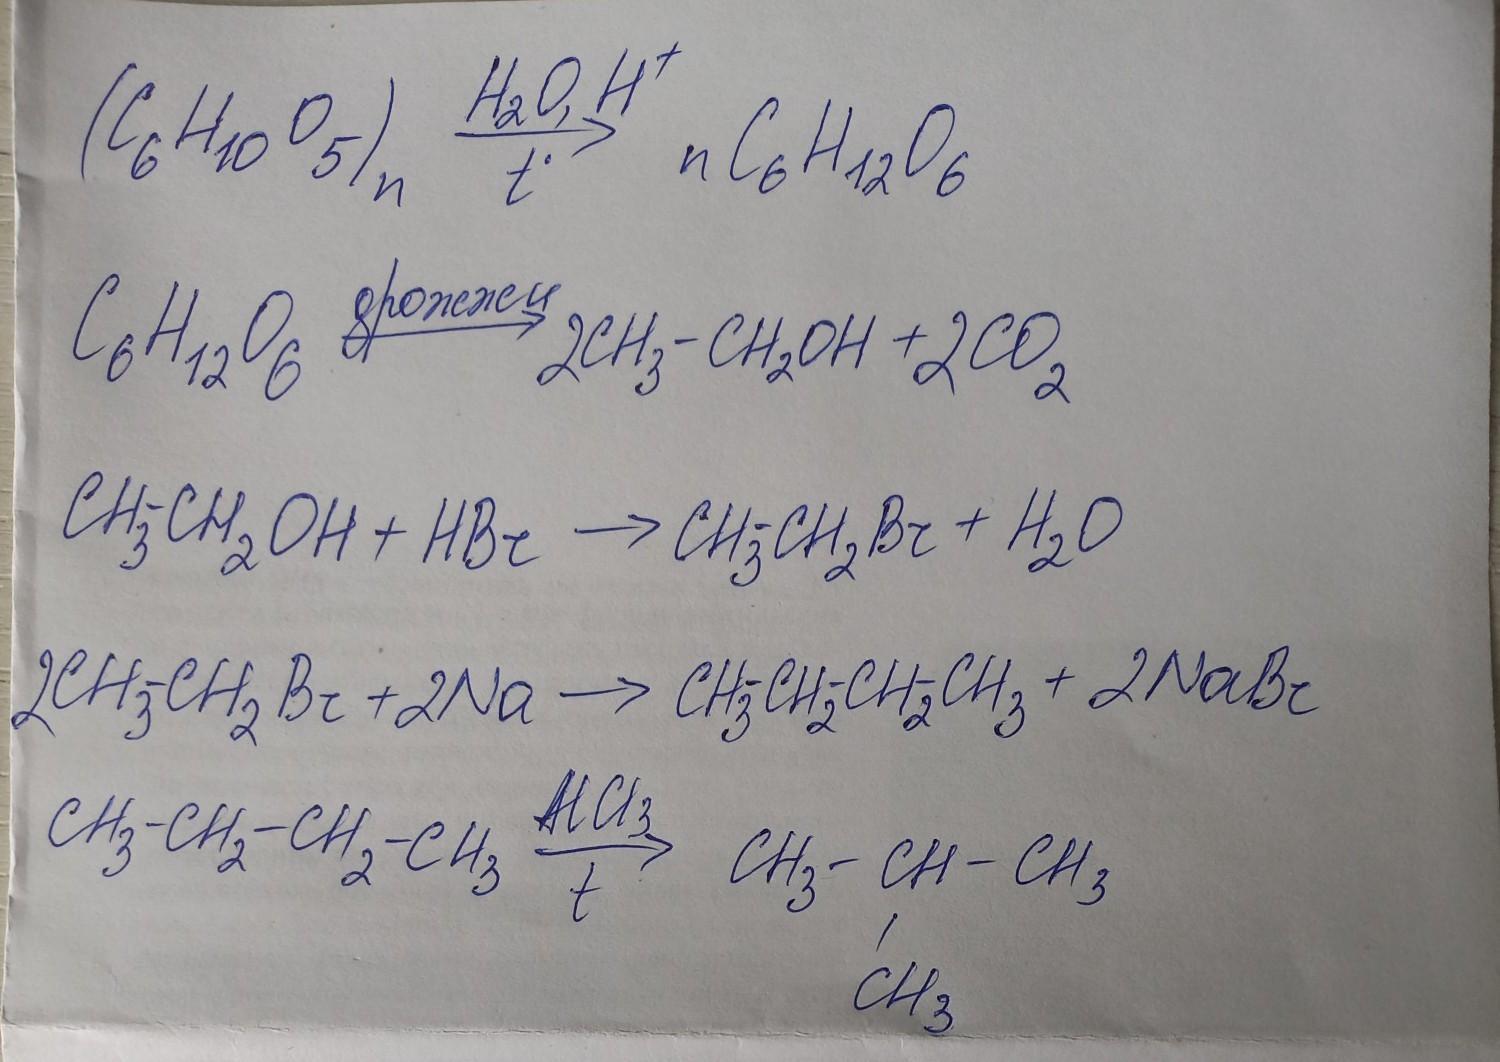 (C₆H₁₀O₅)ₙ →[H₂O, H⁺ / t°] nC₆H₁₂O₆
C₆H₁₂O₆ →[дрожжи] 2CH₃-CH₂OH + 2CO₂
CH₃-CH₂OH + HBr → CH₃-CH₂Br + H₂O
2CH₃-CH₂Br + 2Na → CH₃-CH₂-CH₂-CH₃ + 2NaBr
CH₃-CH₂-CH₂-CH₃ →[AlCl₃ / t] CH₃-CH-CH₃
CH₃